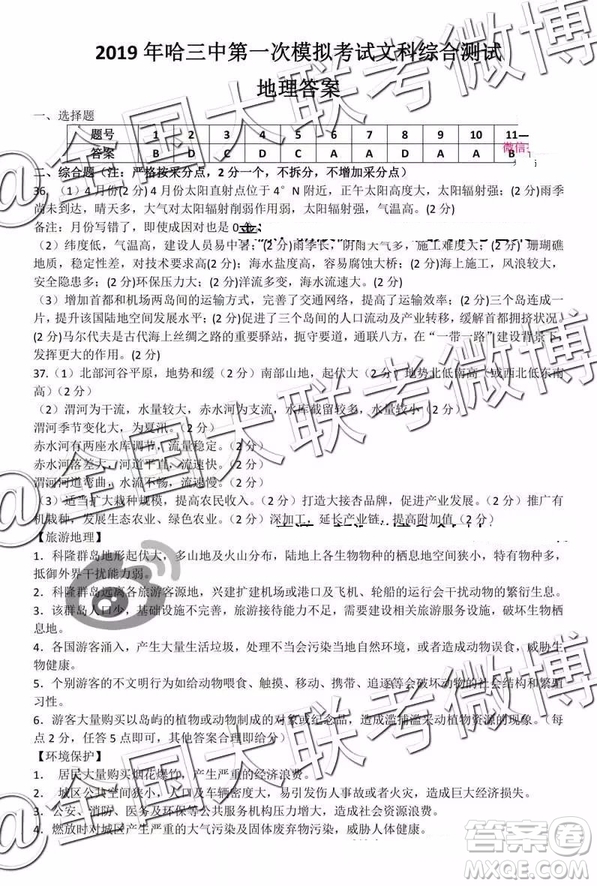 2019 年哈三中第一次模拟考试文科综合测试
地理答案
一、选择题
题号 1 2 3 4 5 6 7 8 9 10 11
答案 B D C D C A D C A A B
微信
二、综合题(注：严格按采分点，2分一个，不拆分，不增加采分点)
36.（1）4 月份(2 分) 4 月份太阳直射点位于 4°N 附近，正午太阳高度大，太阳辐射强；(2 分)雨季
尚未到达，晴天多，大气对太阳辐射削弱作用弱，太阳辐射强。(2 分)
备注：月份写错了，即使成因对也是 0
（2）纬度低，气温高，建设人员易中暑；(2 分)雨季长，施工难度大；(2 分)珊瑚礁
地质，稳定性差，对大桥技术要求高；(2 分)海水盐度高，容易腐蚀大桥；(2 分)海上风浪较大，
危险性高；(2 分)环保压力大；(2 分)洋流多变，海水流速大。(2 分)
（3）增加首都和机场两岛间的运输方式，完善了交通网络，提高了运力；(2 分)三个岛连成一
片，提升该国陆地空间发展水平；(2 分)促进了三个岛之间的人口流动及产业转移，缓解首都拥挤状况；(2 分)
(2 分)马尔代夫是古代海上丝绸之路的重要驿站，扼守要道，通联八方，在“一带一路”建设背景下
发挥更大的作用。(2 分)
37.（1）北部河谷平原，地势和缓（2 分）南部山地，起伏大（2 分）地势北低南高（或西北低东南
高)（2 分）
（2）渭河为干流，水量较大，赤水河为支流，水量较小。(2 分)
渭河季节变化大，为夏汛。（2 分）
赤水河有两座水库调节，流量稳定。（2 分）
赤水河落差大，河道平直，流速快。（2 分）
渭河河道弯曲，水流不畅，流速慢。（2 分）
（3）适当扩大栽种规模，提高农民收入（2 分）打造大葱品牌，提高知名度（2 分）推广有
机栽种，发展生态农业、绿色农业。（2 分）深加工，延长产业链，提高附加值（2 分）
【旅游地理】
1．科隆群岛地形起伏大，多山地及火山分布，陆地上各生物物种的栖息地空间狭小，特有物种多，
抵御外界干扰能力弱。
2．科隆群岛远离各旅游客源地，兴建扩建机场或港口以及飞机、轮船的运行会干扰动物的繁衍生息。
3．该群岛人口少，基础设施不完善，发展旅游需要建设相关旅游服务设施，破坏动物栖息地。
4．各国游客涌入，产生大量生活垃圾，处理不当会污染当地自然环境，或者造成动物误食，威胁
生物健康。
5．个别游客的不文明行为如给动物喂食、触摸、移动、引诱等会造成动物的社会结构和繁殖
习惯。
6．游客大量购买以岛屿的植物或动物制作的对象或纪念品，造成滥捕滥采动植物资源的现象。（每
点 2 分，任答 5 点即可，其它答案合理也可酌情给分）
【环境保护】
1. 居民大量购买烟花爆竹，产生严重的经济浪费。
2. 城区公共空间狭小，人口及车辆密集，易造成巨大经济损失。
3. 公安、消防、医务及环保等公共服务机构压力增大，造成社会资源浪费。
4. 燃放时对城区产生严重的大气污染及固体废弃物污染，威胁人群健康。
@全国大联考微博
答案卷
MXQE.COM